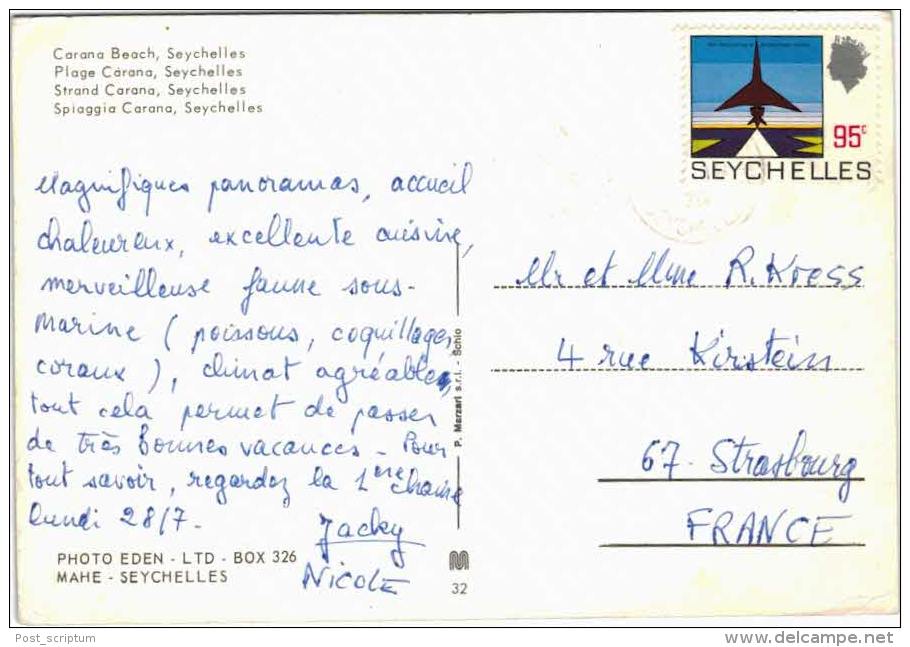 Carana Beach, Seychelles
Plage Carana, Seychelles
Strand Carana, Seychelles
Spiaggia Carana, Seychelles
95c
SEYCHELLES
Magnifiques panoramas, accueil
chaleureux, excellente cuisine,
merveilleuse faune sous-
marine (poissons, coquillages,
coraux), climat agréable,
tout cela permet de passer
de très bonnes vacances - Pour
tout savoir, regardez la 1ère chaine
lundi 28/7.
Jacky
Nicole
P. Marzari s.r.l. - Schio
Mr et Mme R. Kress
4 rue Kirstein
67 - Strasbourg
FRANCE
PHOTO EDEN - LTD - BOX 326
MAHE - SEYCHELLES
32
Post_scriptum
www.delcampe.net